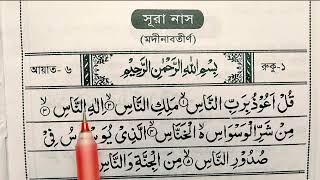 সূরা নাস
(মদীনাবতীর্ণ)
আয়াত- ৬
بِسْمِ اللهِ الرَّحْمٰنِ الرَّحِيْمِ
রুকু-১
قُلْ اَعُوْذُ بِرَبِّ النَّاسِ ۙ﴿۱﴾ مَلِكِ النَّاسِ ۙ﴿۲﴾ اِلٰهِ النَّاسِ ۙ﴿۳﴾
مِنْ شَرِّ الْوَسْوَاسِ ۙ الْخَنَّاسِ ۙ﴿۴﴾ الَّذِيْ يُوَسْوِسُ فِيْ
صُدُوْرِ النَّاسِ ۙ﴿۵﴾ مِنَ الْجِنَّةِ وَالنَّاسِ